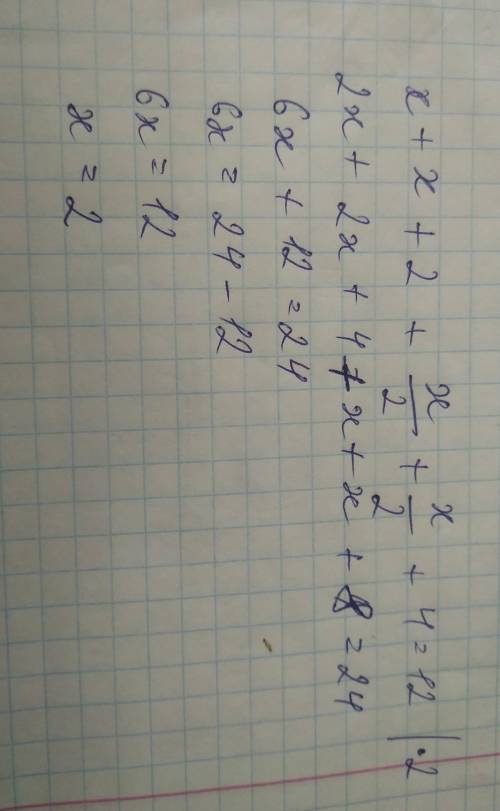 x + x + 2 + x/2 + x/2 + 4 = 12 | · 2
2x + 2x + 4 + x + x + 8 = 24
6x + 12 = 24
6x = 24 - 12
6x = 12
x = 2